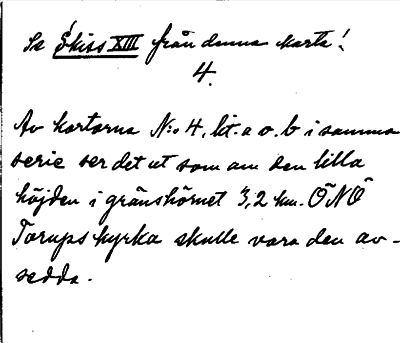 Se Skiss XIII från denna karta!
4.
Av kartorna N:o 4, lit. a o. b i samma
serie ser det ut som om den lilla
höjden i gränshörnet 3,2 km. ÖNÖ
Torups kyrka skulle vara den av-
sedda.